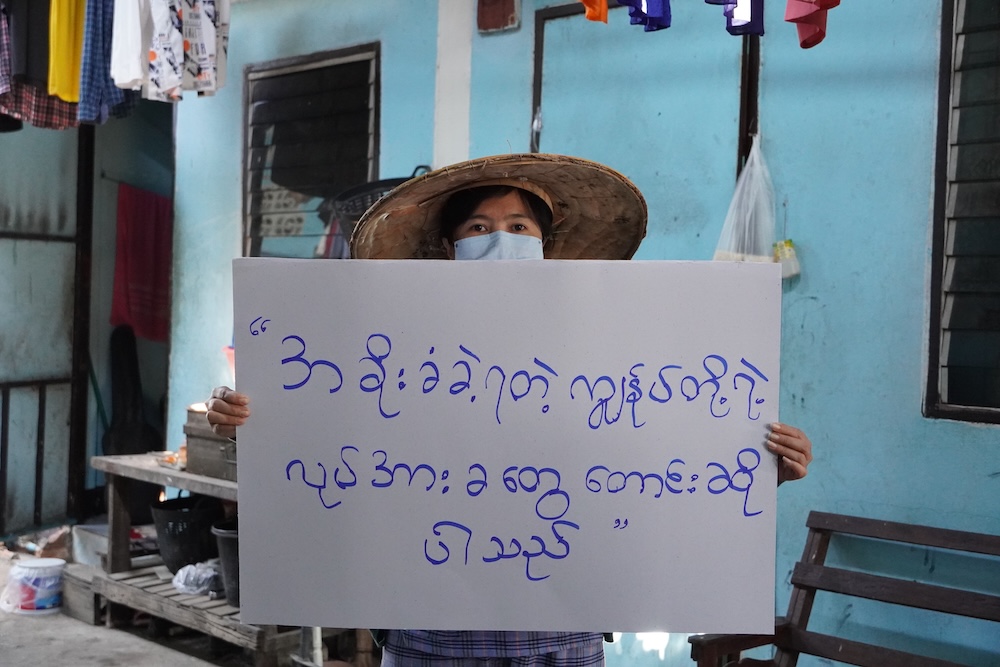 “အခိုးခံခဲ့ရတဲ့ ကျွန်ုပ်တို့ရဲ့
လုပ်အားခတွေ တောင်းဆို
ပါသည်”